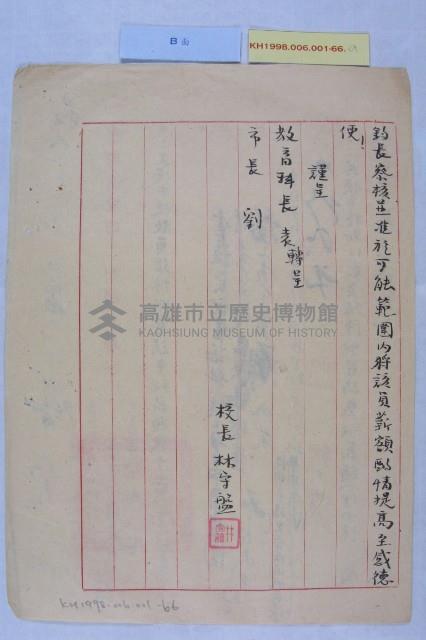 B面
KH1998.006.001-66
鈞長察核並准於可能範圍內將該員薪額酌情提高至感德
便!
謹呈
教育科長袁轉呈
市長 劉
校長林守盤
高雄市立歷史博物館
KAOHSIUNG MUSEUM OF HISTORY
KH1998.006.001-66